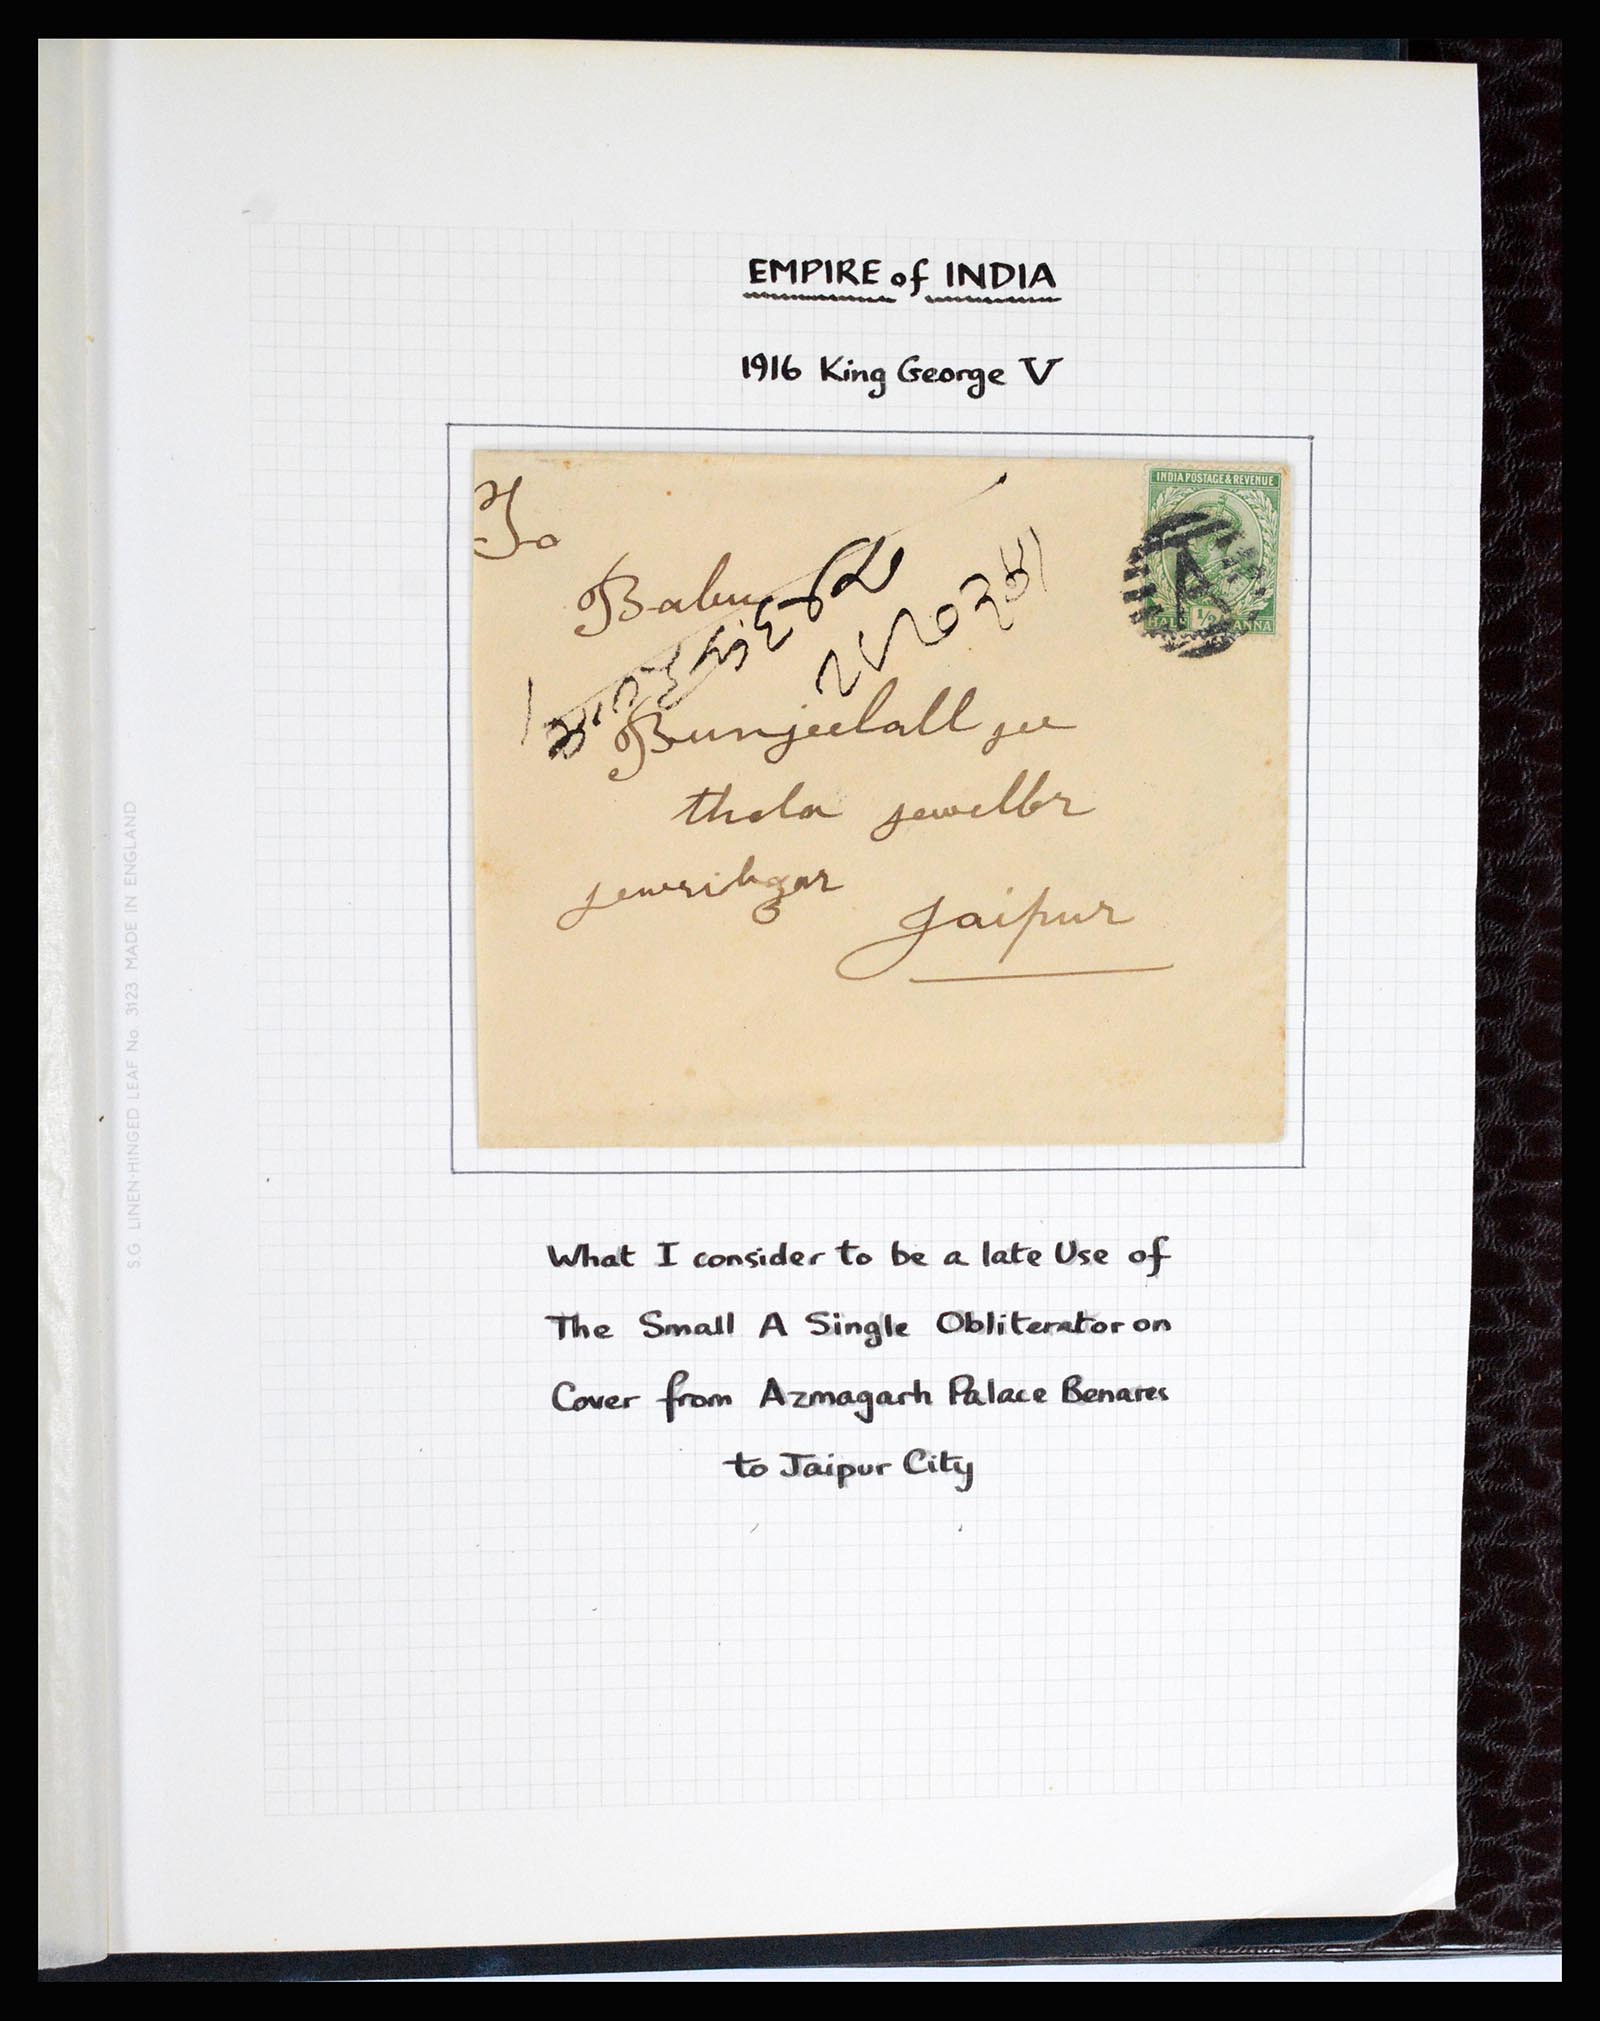 EMPIRE of INDIA
1916 King George V
INDIA POSTAGE & REVENUE
A
HALF 1/2 ANNA
To
Babu
Bunjeelall jee
thola jeweller
Jaipur
What I consider to be a late Use of
The Small A Single Obliterator on
Cover from Azmagarh Palace Benares
to Jaipur City
S.G. LINEN-HINGED LEAF No. 3123 MADE IN ENGLAND